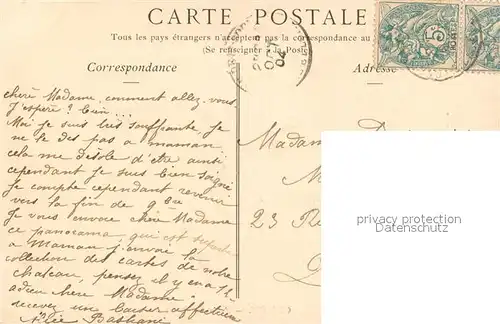 CARTE POSTALE
Tous les pays étrangers n'acceptent pas la correspondance au
(Se renseigner à la Poste
Correspondance
Adresse
chère Madame, comment allez-vous
J'espère ? bien...
Moi je suis très souffrante je
ne le dis pas à maman
cela me désole d'être ainsi
cependant je suis bien soigné
Je compte cependant revenir
vers la fin de 9bre
Je vous envoie chère Madame
ce panorama, qui est
a Maman j'envoie la
collection des cartes de notre
chateau, pensez il y en a
adieu chère Madame
recevez un baiser affectueux
Madame
23 R
privacy protection
Datenschutz